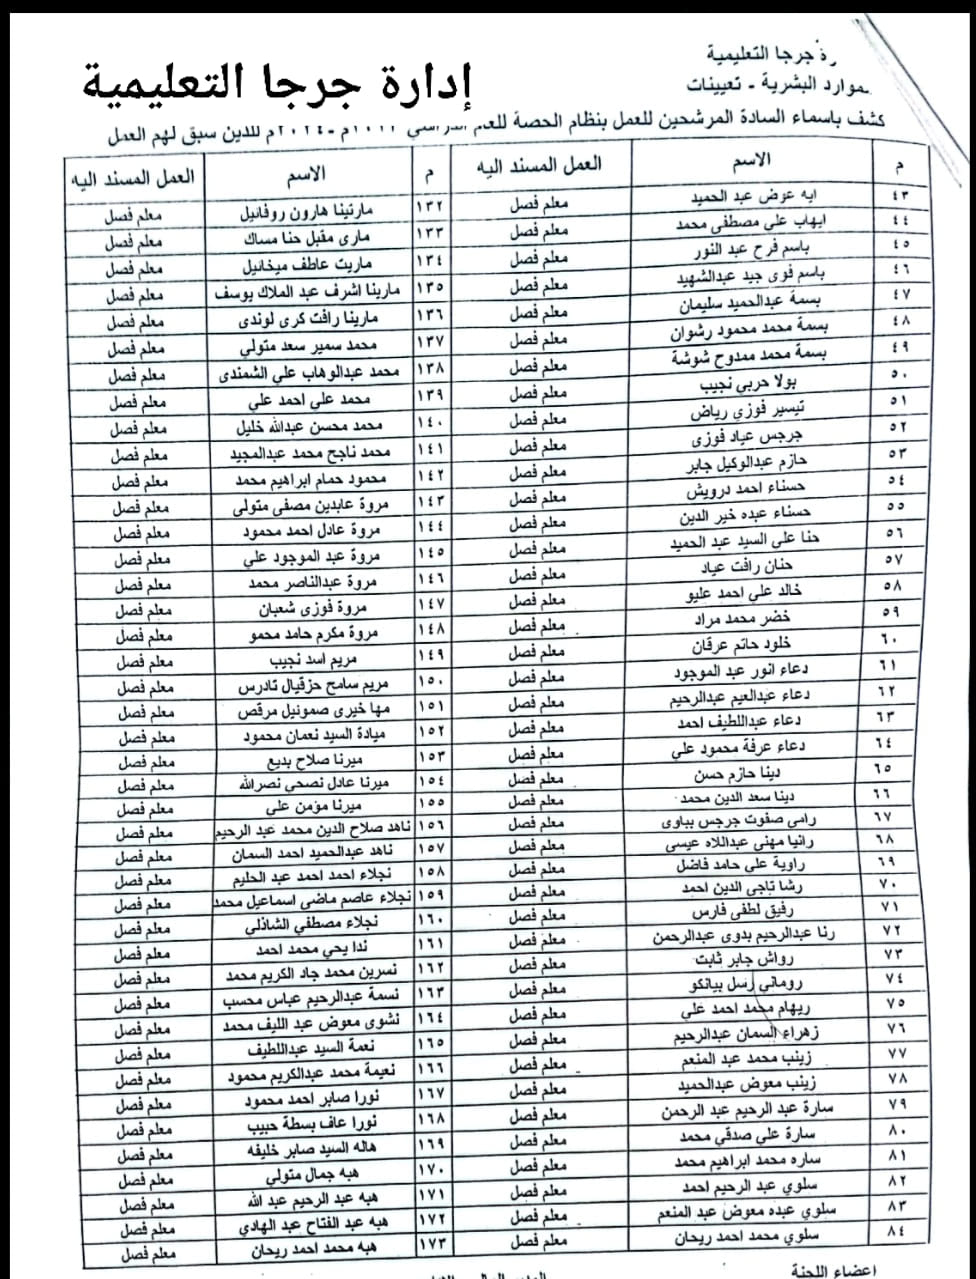 ة جرجا التعليمية
إدارة جرجا التعليمية
موارد البشرية - تعيينات
كشف باسماء السادة المرشحين للعمل بنظام الحصة للعام الدراسي ٢٠٢٣م - ٢٠٢٤م للذين سبق لهم العمل
م الاسم العمل المسند اليه م الاسم العمل المسند اليه
٤٣ ايه عوض عبد الحميد معلم فصل ١٣٢ مارتينا هارون روفائيل معلم فصل
٤٤ ايهاب علي مصطفى محمد معلم فصل ١٣٣ مارى مقبل حنا مساك معلم فصل
٤٥ باسم فرح عبد النور معلم فصل ١٣٤ ماريت عاطف ميخائيل معلم فصل
٤٦ باسم فوى جيد عبدالشهيد معلم فصل ١٣٥ مارينا اشرف عبد الملاك يوسف معلم فصل
٤٧ بسمة عبدالحميد سليمان معلم فصل ١٣٦ مارينا رافت كرى لوندى معلم فصل
٤٨ بسمة محمد محمود رشوان معلم فصل ١٣٧ محمد سمير سعد متولي معلم فصل
٤٩ بسمة محمد ممدوح شوشة معلم فصل ١٣٨ محمد عبدالوهاب علي الشمندى معلم فصل
٥٠ بولا حربي نجيب معلم فصل ١٣٩ محمد علي احمد علي معلم فصل
٥١ تيسير فوزي رياض معلم فصل ١٤٠ محمد محسن عبدالله خليل معلم فصل
٥٢ جرجس عياد فوزى معلم فصل ١٤١ محمد ناجح محمد عبدالمجيد معلم فصل
٥٣ حازم عبدالوكيل جابر معلم فصل ١٤٢ محمود حمام ابراهيم محمد معلم فصل
٥٤ حسناء احمد درويش معلم فصل ١٤٣ مروة عابدين مصفى متولى معلم فصل
٥٥ حسناء عبده خير الدين معلم فصل ١٤٤ مروة عادل احمد محمود معلم فصل
٥٦ حنا على السيد عبد الحميد معلم فصل ١٤٥ مروة عبد الموجود علي معلم فصل
٥٧ حنان رافت عياد معلم فصل ١٤٦ مروة عبدالناصر محمد معلم فصل
٥٨ خالد علي احمد عليو معلم فصل ١٤٧ مروة فوزى شعبان معلم فصل
٥٩ خضر محمد مراد معلم فصل ١٤٨ مروة مكرم حامد محمو معلم فصل
٦٠ خلود حاتم عرفان معلم فصل ١٤٩ مريم اسد نجيب معلم فصل
٦١ دعاء انور عبد الموجود معلم فصل ١٥٠ مريم سامح حزقيال تادرس معلم فصل
٦٢ دعاء عبدالعيم عبدالرحيم معلم فصل ١٥١ مها خيرى صموئيل مرقص معلم فصل
٦٣ دعاء عبداللطيف احمد معلم فصل ١٥٢ ميادة السيد نعمان محمود معلم فصل
٦٤ دعاء عرفة محمود علي معلم فصل ١٥٣ ميرنا صلاح بديع معلم فصل
٦٥ دينا حازم حسن معلم فصل ١٥٤ ميرنا عادل نصحى نصرالله معلم فصل
٦٦ دينا سعد الدين محمد معلم فصل ١٥٥ ميرنا مؤمن علي معلم فصل
٦٧ رامى صفوت جرجس بباوى معلم فصل ١٥٦ ناهد صلاح الدين محمد عبد الرحيم معلم فصل
٦٨ رانيا مهنى عبداللاه عيسى معلم فصل ١٥٧ ناهد عبدالحميد احمد السمان معلم فصل
٦٩ راوية علي حامد فاضل معلم فصل ١٥٨ نجلاء احمد احمد عبد الحليم معلم فصل
٧٠ رشا تاجي الدين احمد معلم فصل ١٥٩ نجلاء عاصم ماضي اسماعيل محمد معلم فصل
٧١ رفيق لطفى فارس معلم فصل ١٦٠ نجلاء مصطفي الشاذلي معلم فصل
٧٢ رنا عبدالرحيم بدوى عبدالرحمن معلم فصل ١٦١ ندا يحي محمد احمد معلم فصل
٧٣ رواش جابر ثابت معلم فصل ١٦٢ نسرين محمد جاد الكريم محمد معلم فصل
٧٤ روماني رسل بيانكو معلم فصل ١٦٣ نسمة عبدالرحيم عباس محسب معلم فصل
٧٥ ريهام محمد احمد علي معلم فصل ١٦٤ نشوى معوض عبد الليف محمد معلم فصل
٧٦ زهراء السمان عبدالرحيم معلم فصل ١٦٥ نعمة السيد عبداللطيف معلم فصل
٧٧ زينب محمد عبد المنعم معلم فصل ١٦٦ نعيمة محمد عبدالكريم محمود معلم فصل
٧٨ زينب معوض عبدالحميد معلم فصل ١٦٧ نورا صابر احمد محمود معلم فصل
٧٩ سارة عبد الرحيم عبد الرحمن معلم فصل ١٦٨ نورا عاف بسطة حبيب معلم فصل
٨٠ سارة علي صدقي محمد معلم فصل ١٦٩ هاله السيد صابر خليفه معلم فصل
٨١ ساره محمد ابراهيم محمد معلم فصل ١٧٠ هبه جمال متولي معلم فصل
٨٢ سلوي عبد الرحيم احمد معلم فصل ١٧١ هبه عبد الرحيم عبد الله معلم فصل
٨٣ سلوي عبده معوض عبد المنعم معلم فصل ١٧٢ هبه عبد الفتاح عبد الهادي معلم فصل
٨٤ سلوي محمد احمد ريحان معلم فصل ١٧٣ هبه محمد احمد ريحان معلم فصل
اعضاء اللجنة